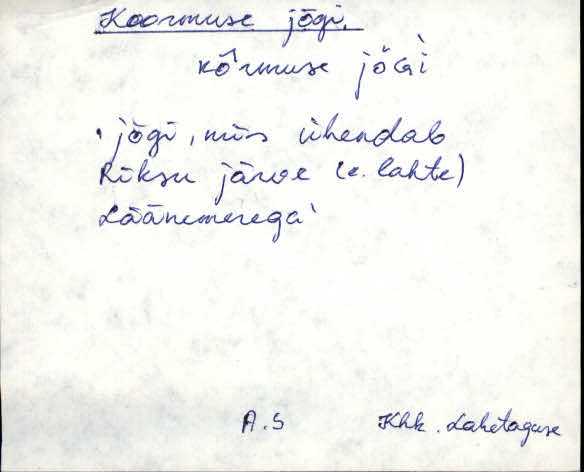 Koormuse jõgi.
kõ̀rmuse jõGi`
‘jõgi, mis ühendab
Riksu järve (e. lahte)
Läänemerega’
A.S Khk. Lahetaguse